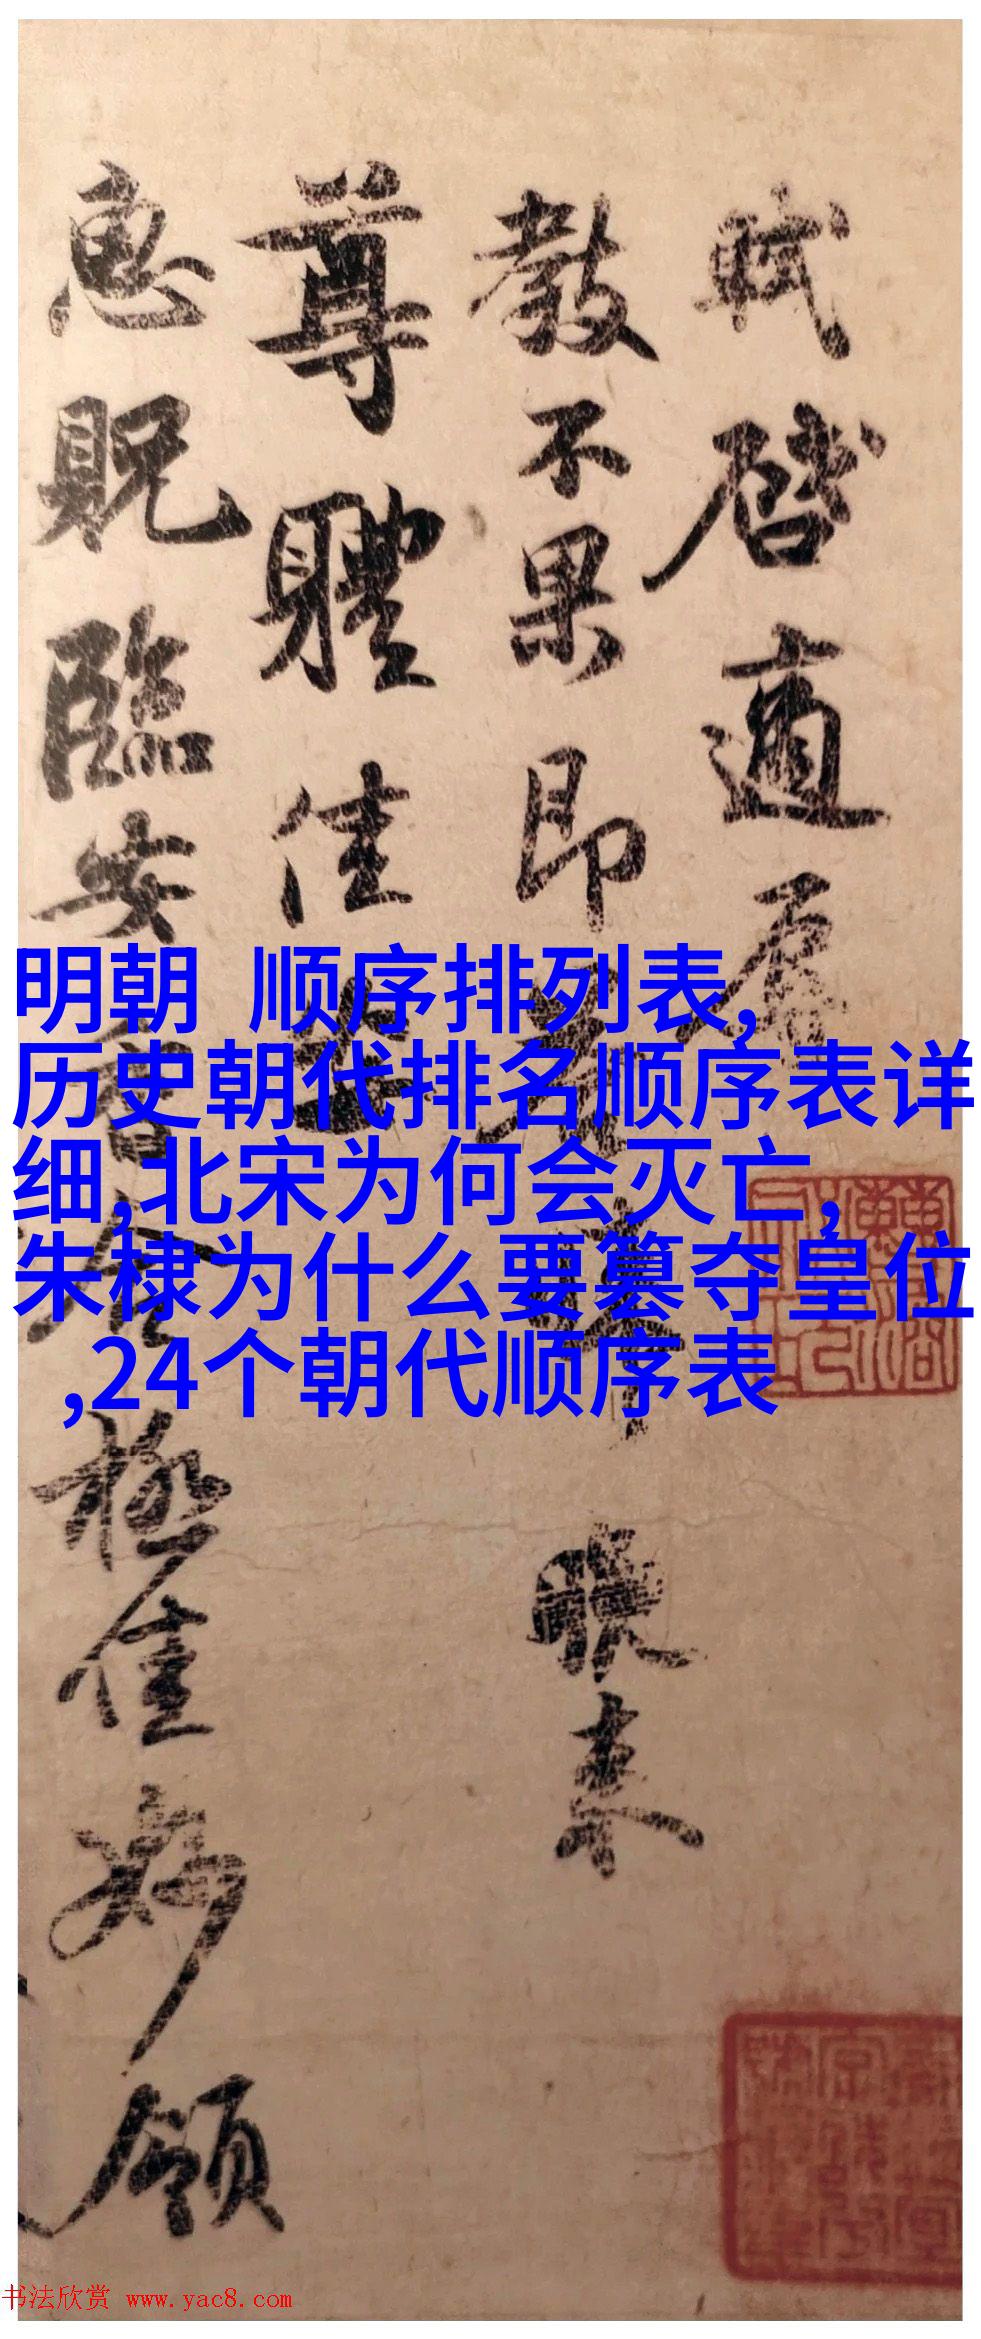 軾啓適辱
教不果即
晚来
尊體佳
惠貺臨安
極佳妙領
明朝 顺序排列表,
历史朝代排名顺序表详
细,北宋为何会灭亡,
朱棣为什么要篡夺皇位
,24个朝代顺序表
书法欣赏 www.yac8.com